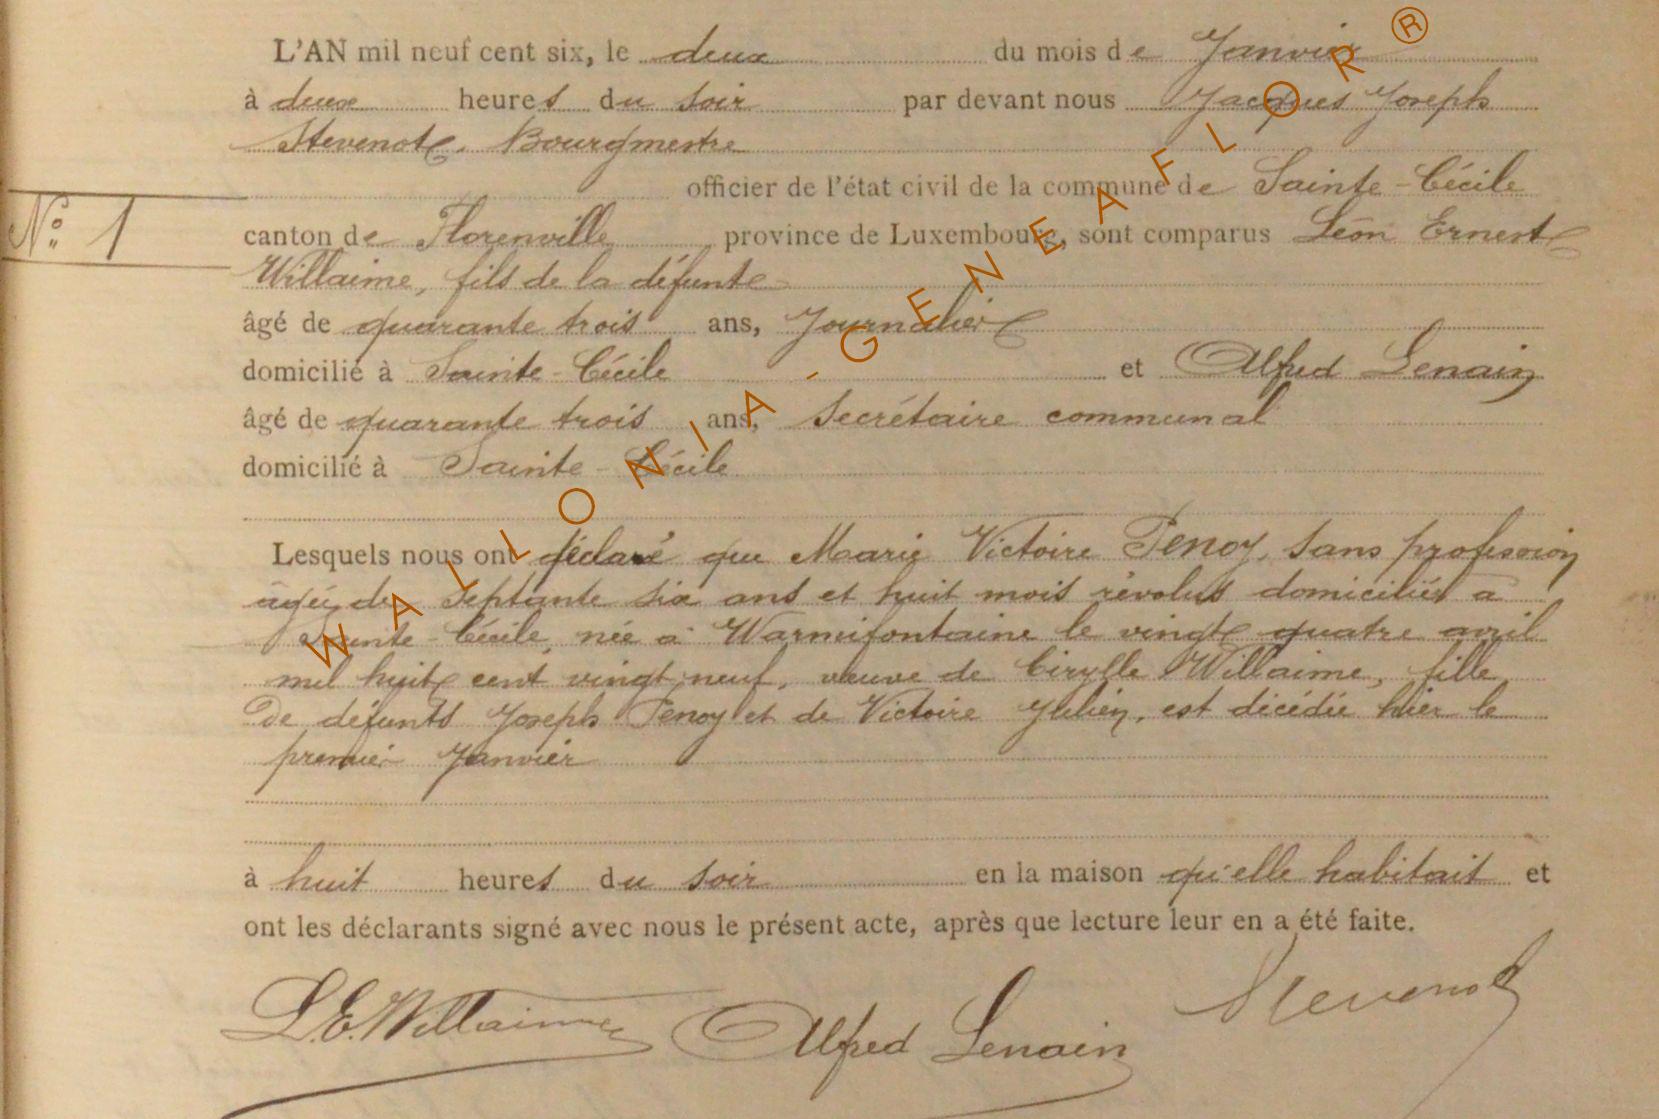 L'AN mil neuf cent six, le deux du mois de Janvier
à deux heures du soir par devant nous Jacques Joseph
Stevenot, Bourgmestre
officier de l'état civil de la commune de Sainte-Cécile
N° 1
canton de Florenville, province de Luxembourg, sont comparus Léon Ernest
Willaime, fils de la défunte
âgé de quarante trois ans, Journalier
domicilié à Sainte-Cécile et Alfred Lenain
âgé de quarante trois ans, Secrétaire communal
domicilié à Sainte-Cécile
Lesquels nous ont déclaré que Marie Victoire Penoy, sans profession
âgée de Septante six ans et huit mois révolus domiciliée à
Sainte-Cécile, née à Warneifontaine le vingt quatre avril
mil huit cent vingt neuf, veuve de Cirylle Willaime, fille
De défunts Joseph Penoy et de Victoire Julien, est décédée hier le
premier Janvier
à huit heures du soir en la maison qu'elle habitait et
ont les déclarants signé avec nous le présent acte, après que lecture leur en a été faite.
L.E.Willaime Alfred Lenain Stevenot
WALLONIA-GENEAFLOR®